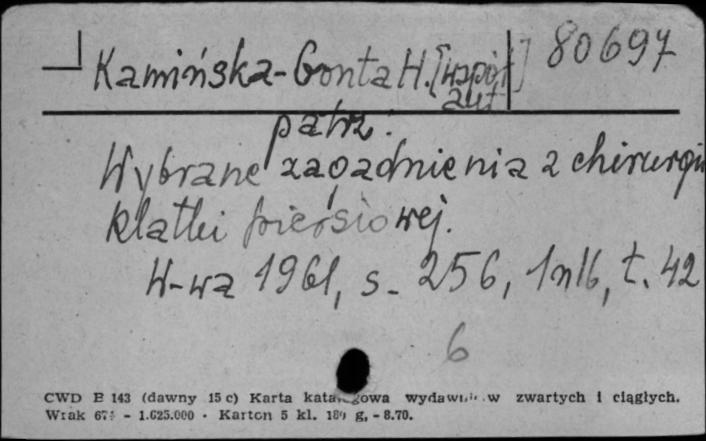 Kamińska-Gonta H. [współ aut] 80697
patrz:
Wybrane zagadnienia z chirurgii
klatki piersiowej.
W-wa 1961, s. 256, 1 nlb, t. 42
6
CWD B 143 (dawny 15 c) Karta katalogowa wydawn. w zwartych i ciągłych.
Wzak - 1.625.000 - Karton 5 kl. g, - 8.70.